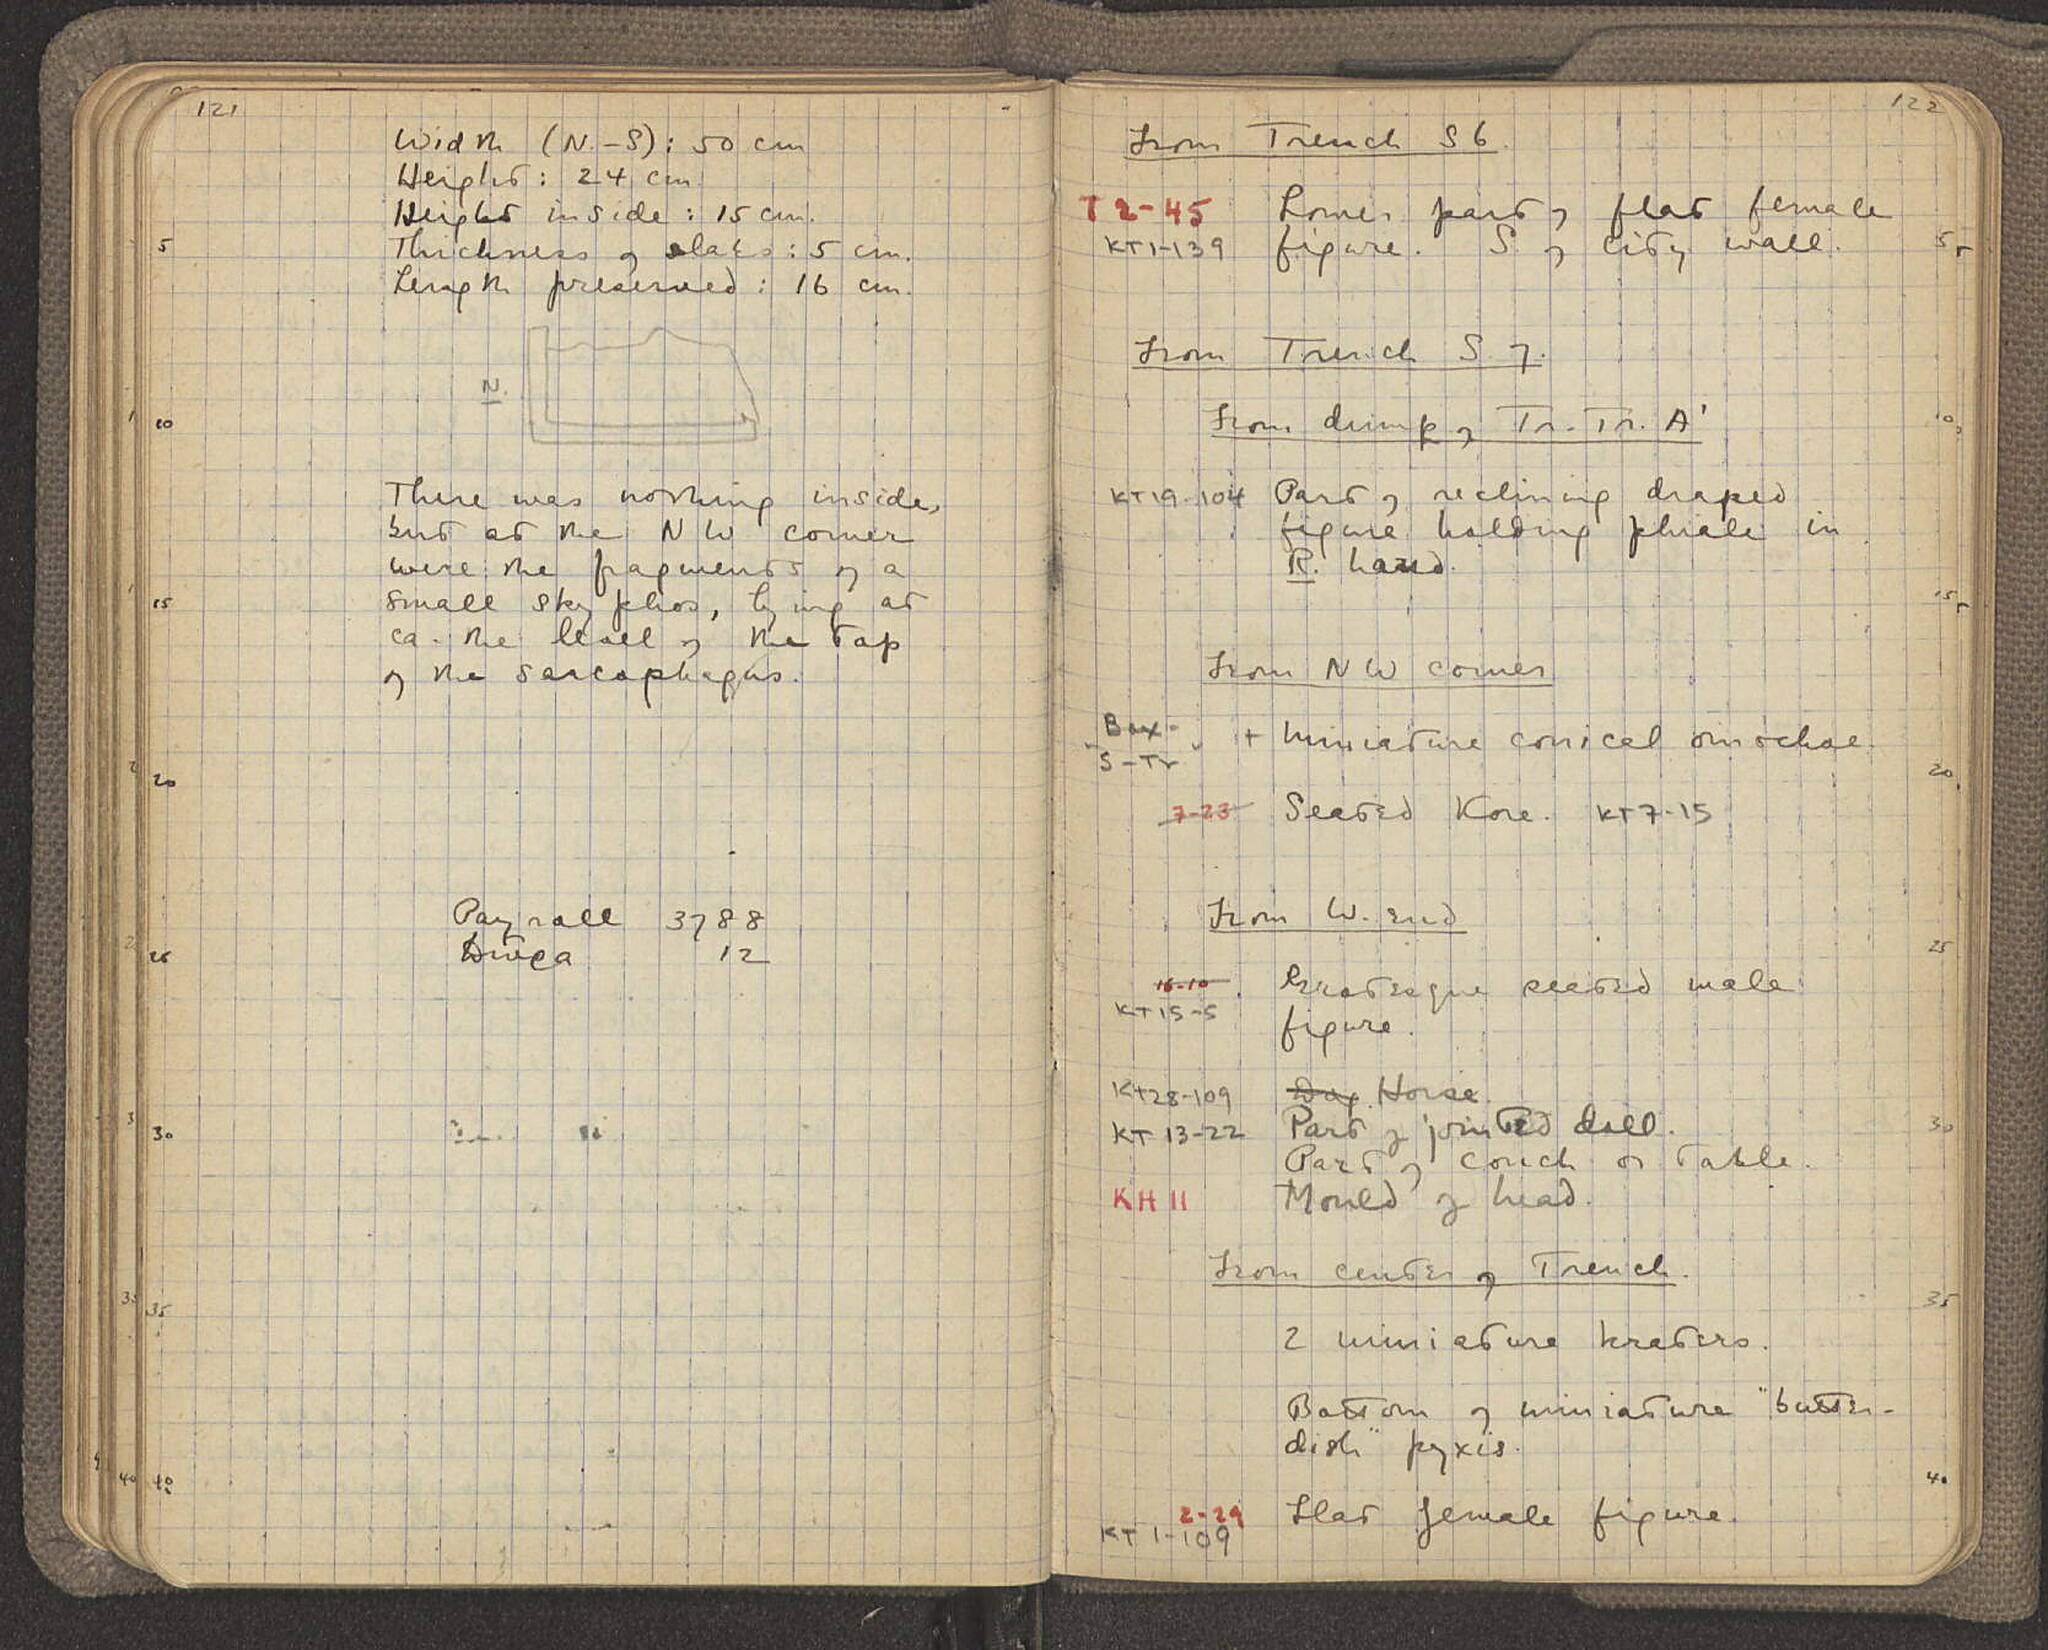 121
Width (N.-S): 50 cm
Height: 24 cm.
Height inside: 15 cm.
Thickness of slabs: 5 cm.
Length preserved: 16 cm.
N.
There was nothing inside,
but at the NW corner
were the fragments of a
small skyphos, lying at
ca. the level of the top
of the sarcophagus.
Payroll 3788
12
5
10
15
20
25
30
35
40
122
From Trench S 6.
T 2-45 Lower part of flat female
KT1-139 figure. S. of city wall.
From Trench S 7.
From dump of Tr. Tr. A'
KT19-104 Part of reclining draped
figure holding phiale in
R. hand.
From NW corner
Box
S-Tr + Miniature conical oinochoe.
7-23 Seated Kore. KT7-15
From W. end
16-10 Grotesque seated male
KT15-5 figure.
KT28-109 Dog Horse.
KT 13-22 Part of jointed doll.
Part of couch or table.
KH 11 Mould of head.
From center of Trench.
2 miniature kraters.
Bottom of miniature "butter-
dish" pyxis.
2-29 Flat female figure.
KT 1-109
5
10
15
20
25
30
35
40